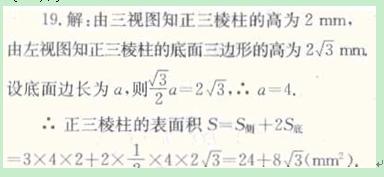 19.解:由三视图知正三棱柱的高为 2 mm,
由左视图知正三棱柱的底面三边形的高为 2√3 mm.
设底面边长为 a,则√3/2 a=2√3,∴ a=4.
∴ 正三棱柱的表面积 S=S侧+2S底
=3×4×2+2×1/2×4×2√3=24+8√3(mm²).